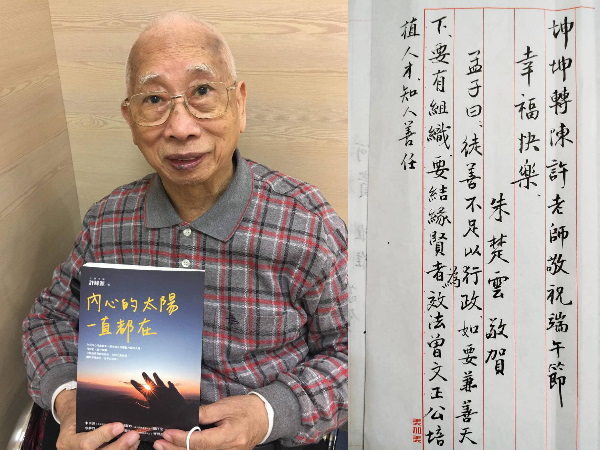 許峰源
內心的太陽
一直都在
坤坤轉陳許老師敬祝端午節
幸福快樂、
朱楚雲 敬賀
孟子曰、徒善不足以行政、如要兼善天
為
下、要有組織、要結緣賢者效法曾文正公培
植人才、知人善任